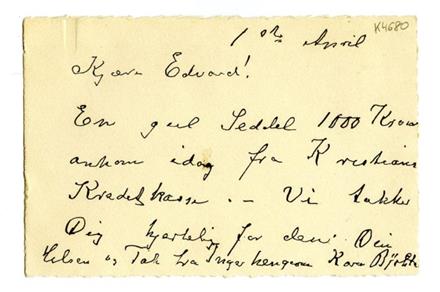 K4680
1ste April
Kjære Edvard!
En gul Seddel 1000 Kroner
ankom idag fra Kristiania
Kreditkasse. – Vi takker
Dig hjertelig for den. Din
Hilsen og Tak fra Inger Karen